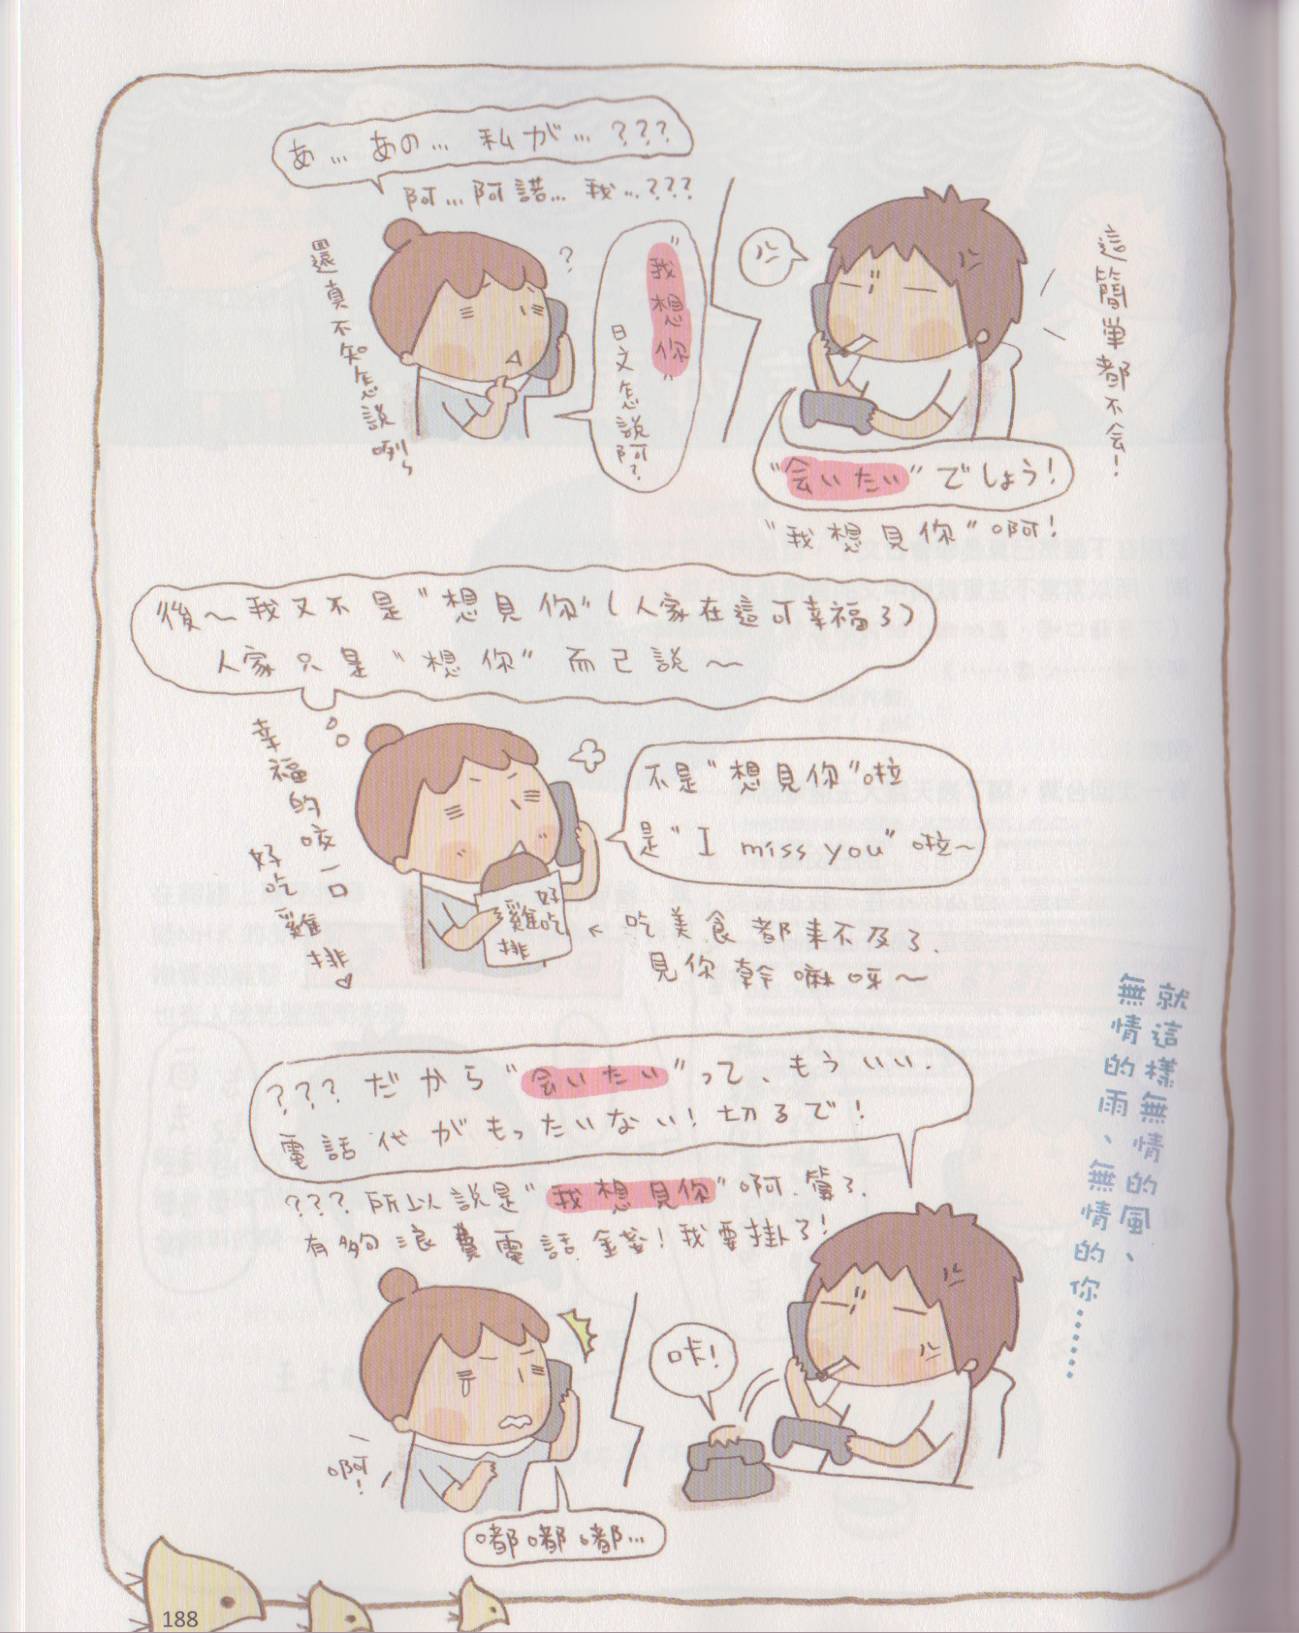 あ…あの…私が…???
阿…阿諾…我…???
還真不知怎說咧~
"我想你"
日文怎說阿?
這簡單都不会!
"会いたい"でしょう!
"我想見你"啊!
後~我又不是"想見你"(人家在這可幸福了)
人家只是"想你"而己說~
幸福的咬一口
好吃雞排♡
不是"想見你"啦
是"I miss you"啦~
好吃
雞排
←吃美食都来不及了.
見你幹嘛呀~
???だから"会いたい"って、もういい.
電話代がもったいない!切るで!
???所以說是"我想見你"啊.算了.
有夠浪費電話金錢!我要掛了!
就這樣無情的風、
無情的雨、無情的你……
咔!
啊!
嘟嘟嘟…
188